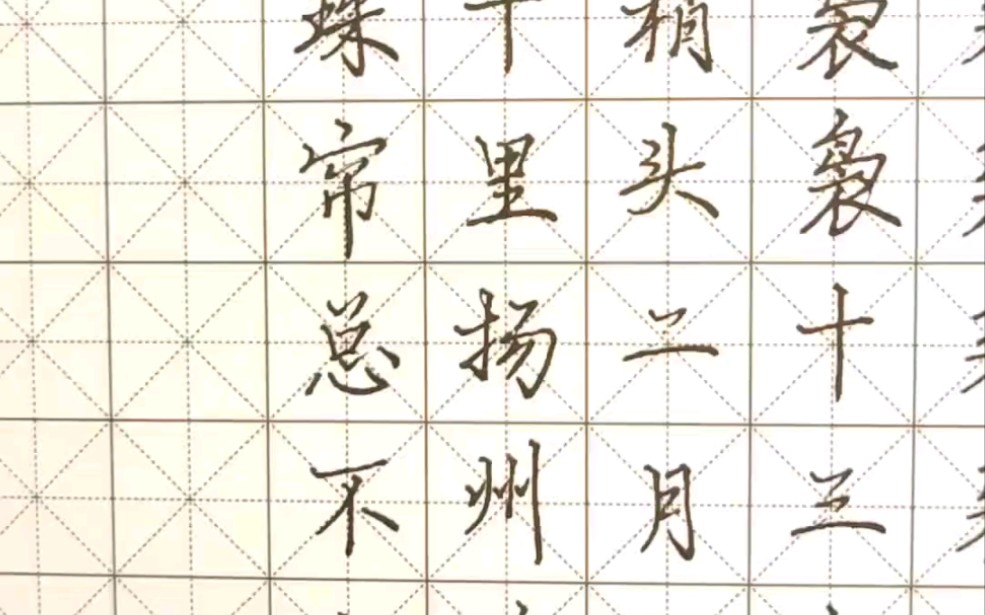 袅袅十三
梢头二月
十里扬州
珠帘总不